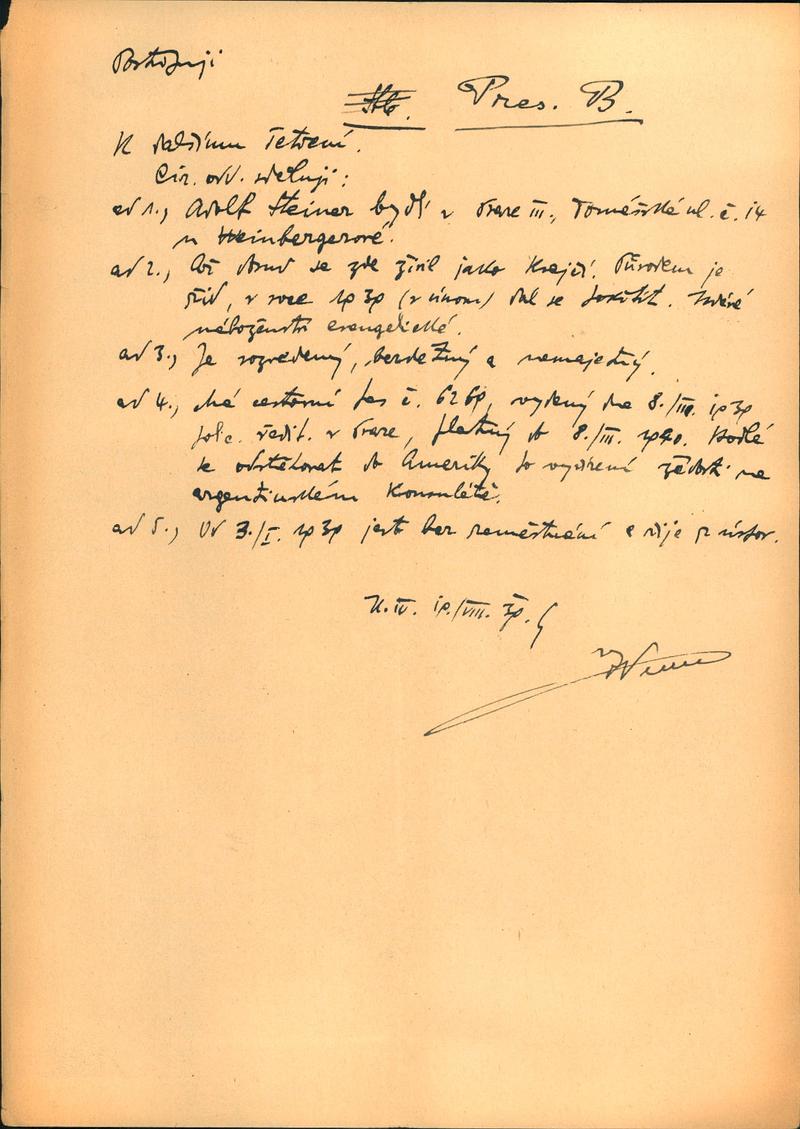 Postupuji
Pres. B.
K dalšímu řetření.
Cir. odd. sděluji:
ad 1., Adolf Steiner bydlí v Praze III., Tomášská ul. č. 14
u Weinbergerové.
ad 2., Až dosud se zde živil jako Krejčí. Původem je
žid, v roce 1939 (v únoru) dal se pokřtít. Nyní
náboženství evangelické.
ad 3., Je rozvedený, bezdětný a nemajetný.
ad 4., Má cestovní pas č. 6269, vydaný dne 8./III. 1939
polic. ředit. v Praze, platný do 8./III. 1940. Hodlá
se odstěhovat do Ameriky po vyřízení žádosti na
argentinském Konsulátě.
ad 5., Od 3./I. 1939 jest bez zaměstnání a žije z úspor.
19./VIII. 39.